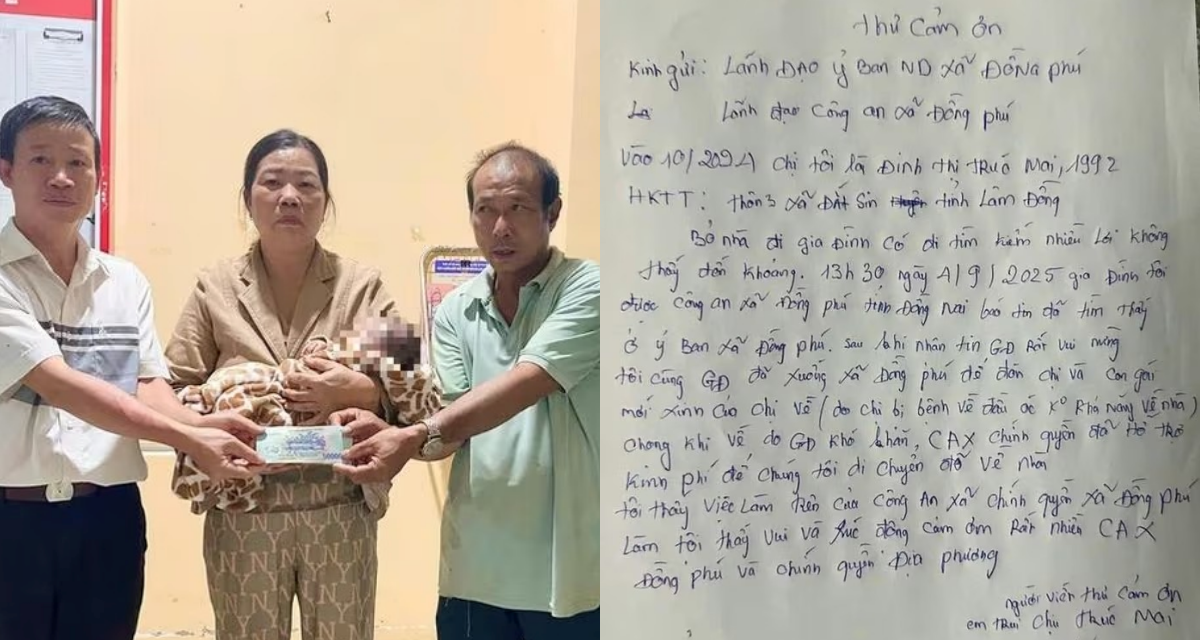 Thư Cảm ơn
Kính gửi: Lãnh ĐẠO ỷ Ban ND xã ĐỒNG phú
Lãnh đạo công an xã Đồng phú
Vào 10/2024 chị tôi là Đinh thị trúc Mai, 1992
HKTT: thôn 3 xã Đất Sin tỉnh Lâm Đồng
Bỏ nhà đi gia Đình có đi tìm kiếm nhiều lơi không
thấy đến khoảng. 13h 30 ngày 4/9/2025 gia Đình tôi
được công an xã Đồng phú tỉnh Đồng Nai báo tin đã tìm thấy
ở ỷ Ban xã Đồng phú. sau khi nhân tin GĐ Rất vui mừng
tôi cùng GĐ đã xuống xã Đồng phú để đón chị và con gái
mới xinh của chị về (do chị bị bệnh về đầu óc Ko Khả năng về nhà)
chong khi về do GĐ khó khăn, CAX chính quyền đã Hỗ trợ
kinh phí để chúng tôi di chuyển về nhà
tôi thấy việc làm trên của công An xã chính quyền xã Đồng phú
Làm tôi thấy vui và xúc động cảm ơn Rất nhiều CAX
Đồng phú và chính quyền Địa phương
người viết thư cảm ơn
em trai chị trúc Mai
50000
NY